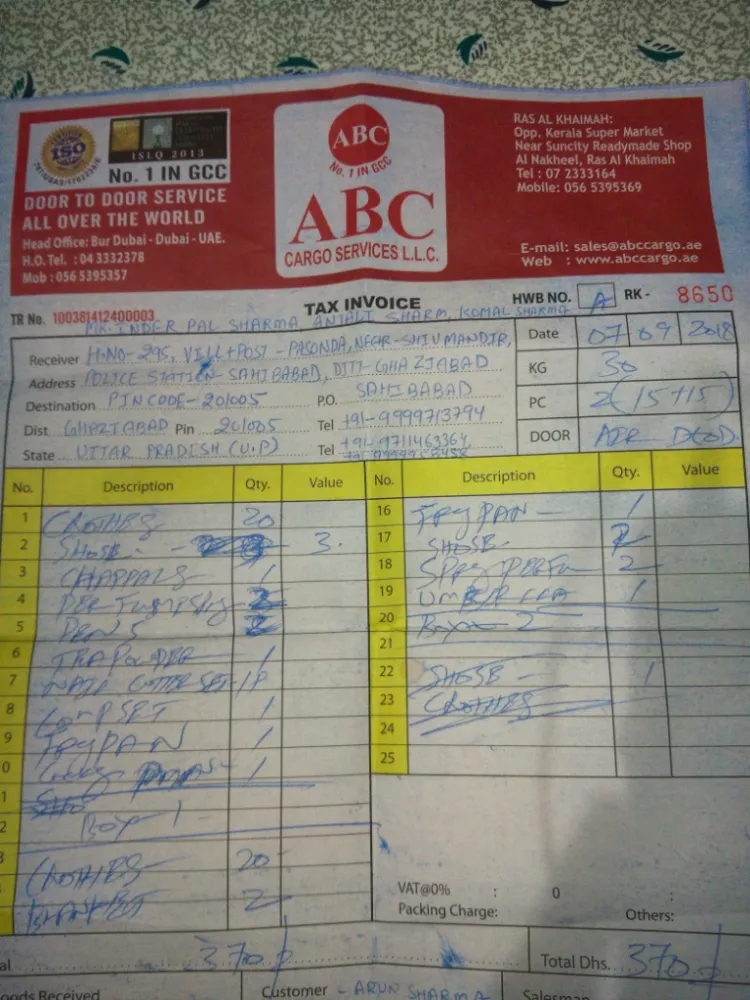 ISO
ISLQ 2013
No. 1 IN GCC
DOOR TO DOOR SERVICE
ALL OVER THE WORLD
Head Office: Bur Dubai - Dubai - UAE.
H.O. Tel. : 04 3332378
Mob : 056 5395357
ABC
No. 1 IN GCC
ABC
CARGO SERVICES L.L.C.
RAS AL KHAIMAH:
Opp. Kerala Super Market
Near Suncity Readymade Shop
Al Nakheel, Ras Al Khaimah
Tel : 07 2333164
Mobile: 056 5395369
E-mail: sales@abccargo.ae
Web : www.abccargo.ae
TR No. 100381412400003
TAX INVOICE
HWB NO. A RK - 8650
INDER PAL SHARMA ANJALI SHARM, KOMAL SHARMA
Receiver H.NO-295, VILL+POST-PASONDA, NEAR-SHIV MANDIR,
Address POLICE STATION-SAHIBABAD, DITT-GHAZIABAD
Destination PINCODE-201005 P.O. SAHIBABAD
Dist GHAZIABAD Pin 201005 Tel +91-9999713794
State UTTAR PRADESH (U.P) Tel +91-9711463364
Date 07 09 2018
KG 30
PC 2 (15+15)
DOOR
No. Description Qty. Value
1 CLOTHES 20
2 SHOSE 3.
3 CHAPPALS 1
4
5 PENS
6 1
7 NAIL CUTTER SET-1P
8 1
9 FRYPAN 1
0 1
1
2 BOX 1
3 CLOTHES 20
BLANKET 2
No. Description Qty. Value
16 FRYPAN - 1
17 SHOSE.
18 2
19 UMBRELLA 1
20 2
21
22 SHOSE - 1
23 CLOTHES
24
25
VAT@0% : 0 :
Packing Charge: Others:
al 370
Total Dhs. 370
oods Received
Customer - ARUN SHARMA
Salesman